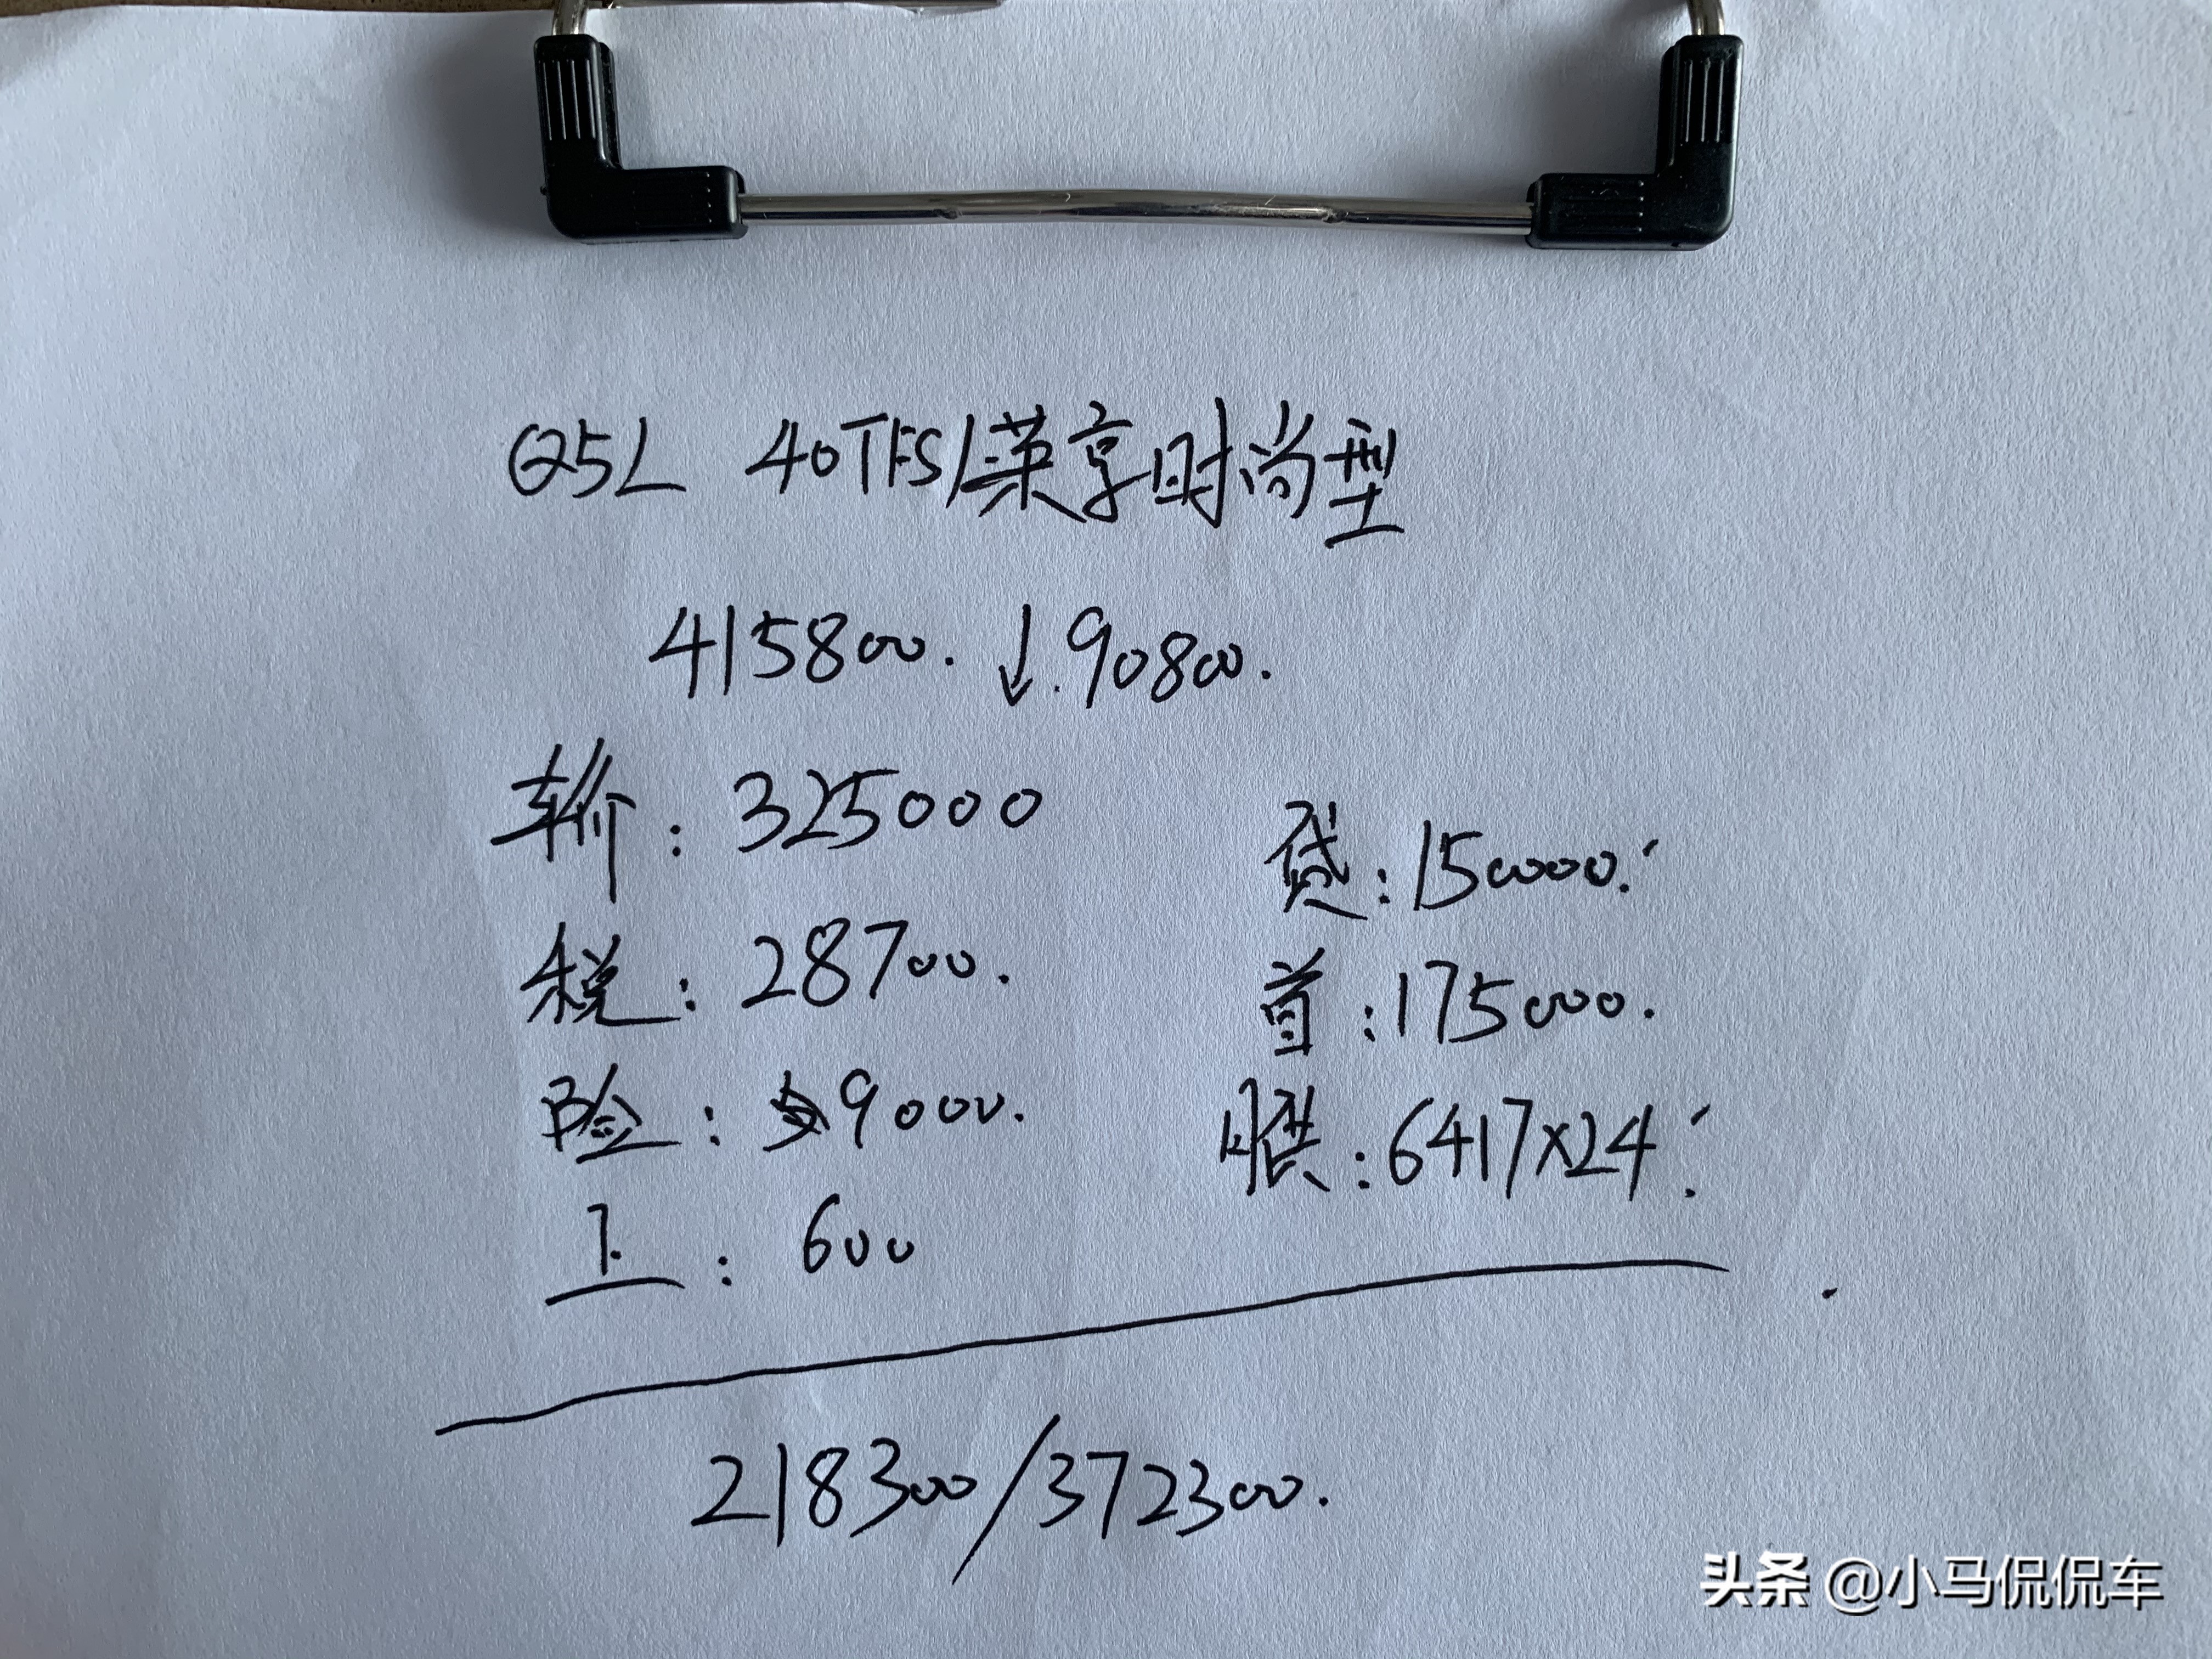 Q5L 40TFSI荣享时尚型
415800. ↓.90800.
车价：325000
税：28700.
险：9000.
上：600
贷：150000.
首：175000.
月供：6417×24
218300/372300.
头条 @小马侃侃车